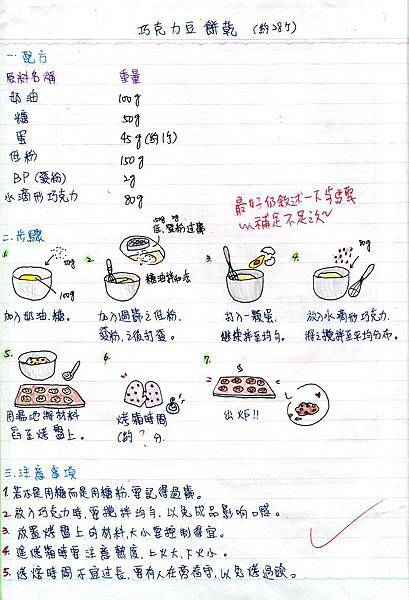 巧克力豆餅乾 (約28片)
一.配方
原料名稱 重量
奶油 100g
糖 50g
蛋 45g (約1个)
低粉 150g
BP(發粉) 2g
水滴形巧克力 80g
最好仍敘述一下步驟
以補足不足之處~
二.步驟
1. 50g 100g
加入奶油、糖。
2. 150g 2g
低、發粉過篩
加入過篩之低粉、
發粉,之後打蛋。
3.
放入一顆蛋,
繼續拌至均勻。
4. 80g
放入水滴形巧克力,
將之攪拌至平均分布。
5.
用湯匙將材料
舀至烤盤上。
6.
烤箱時間
(約 ? 分)
7.
出爐!!
三.注意事項
1. 若不是用糖而是用糖粉,要記得過篩。
2. 放入巧克力時,要攪拌均勻,以免成品影響口感。
3. 放置烤盤上的材料,大小要控制得宜。
4. 進烤箱時要注意熱度,上火大、下火小。
5. 烤焙時間不宜過長,要有人在旁看守,以免烤過頭。